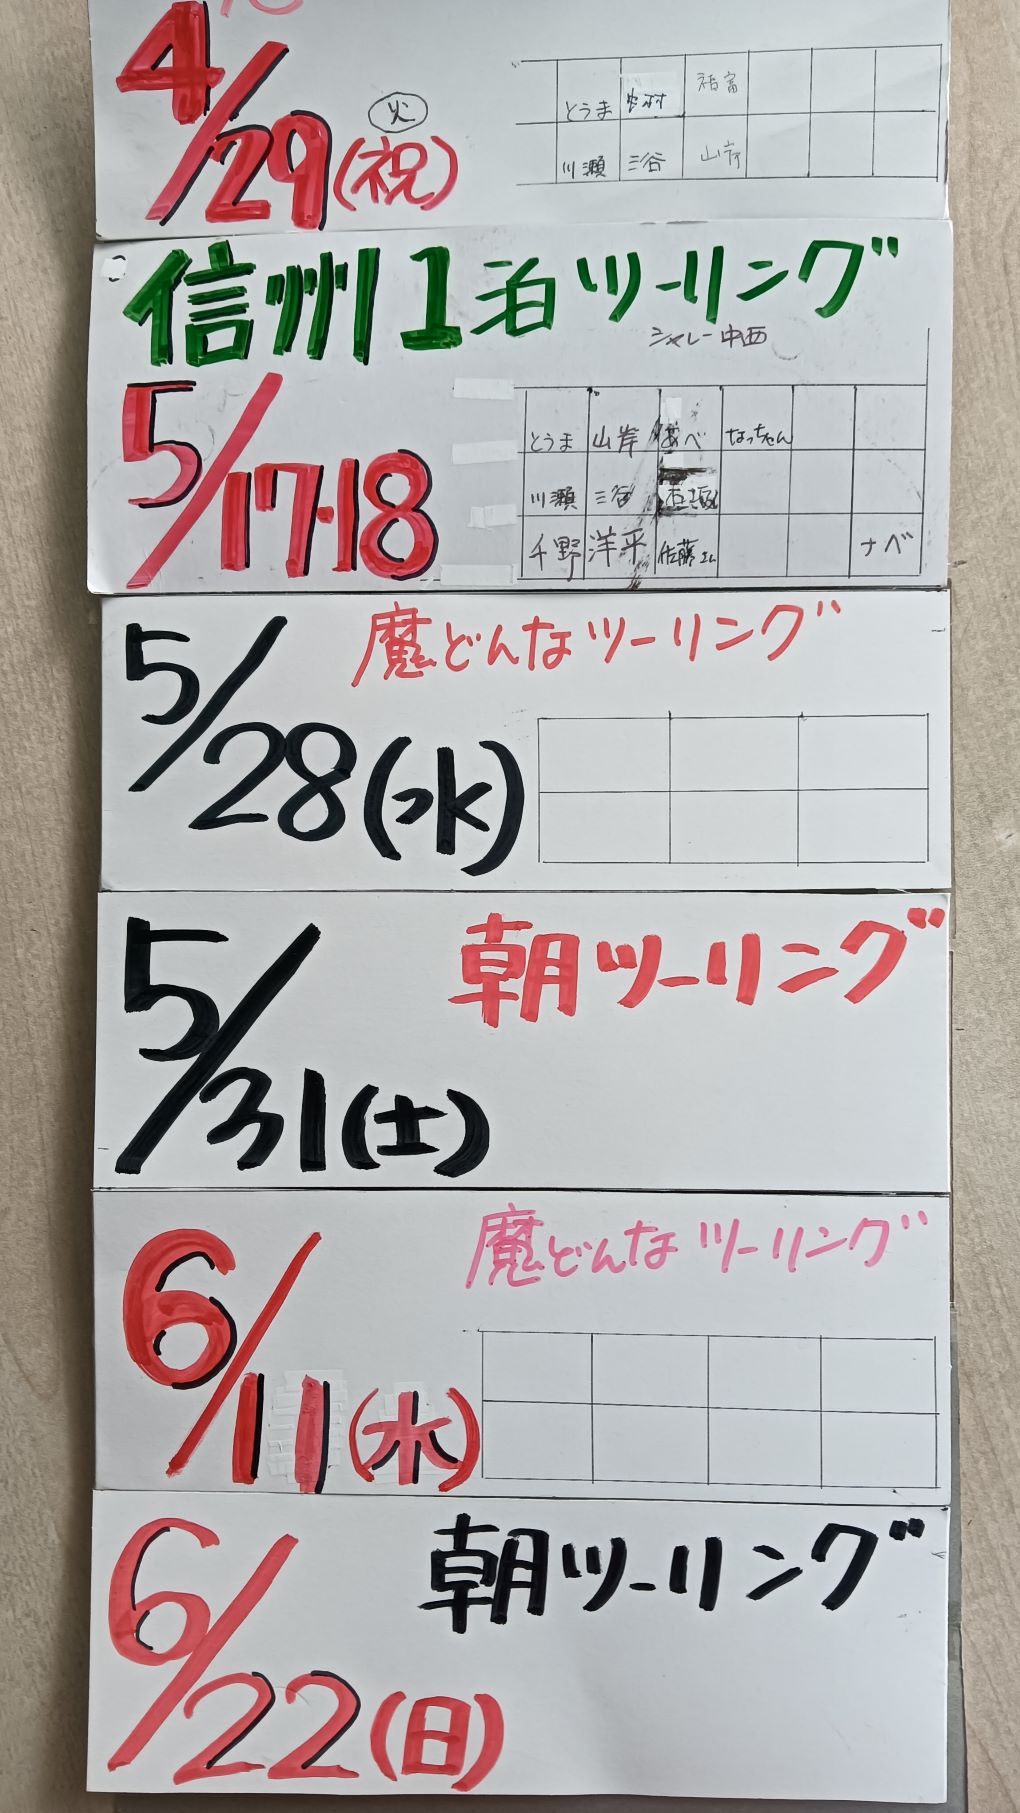 4/29(祝)
火
とうま 中村 福富
川瀬 三谷 山岸
信州1泊ツーリング
シャレー中西
5/17・18
とうま 山岸 あべ なっちゃん
川瀬 三谷
千野 洋平 佐藤 ナベ
5/28(水)
魔どんなツーリング
5/31(土)
朝ツーリング
6/11(水)
魔どんなツーリング
6/22(日)
朝ツーリング